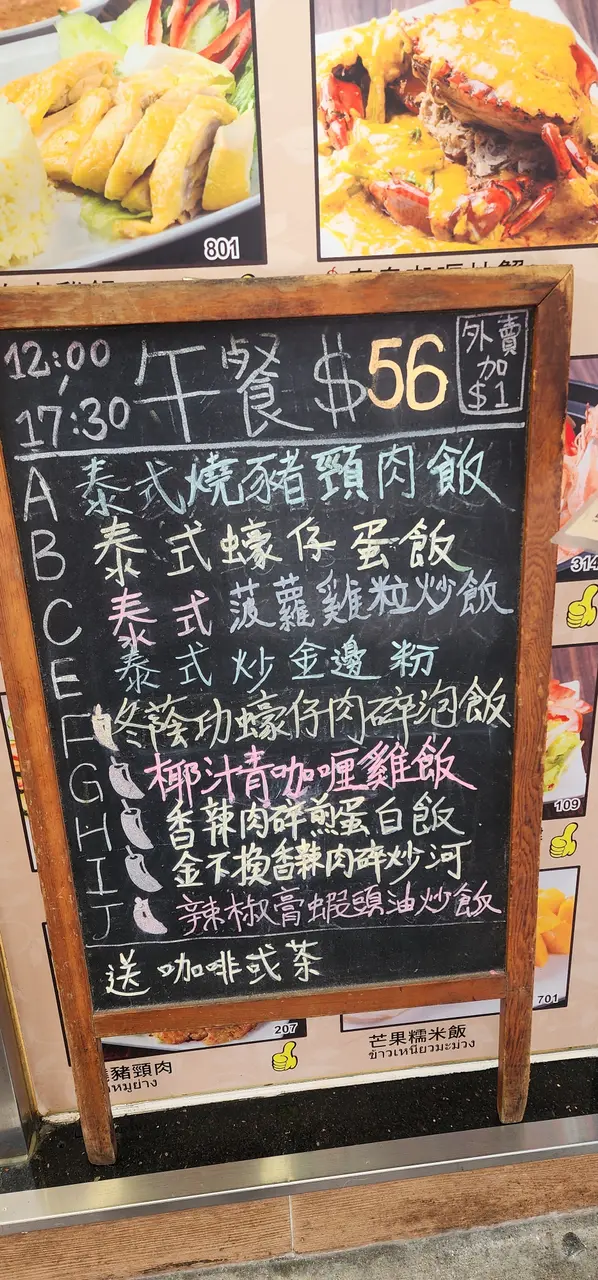 801
12:00
17:30
午餐 $56
外賣
加
$1
A 泰式燒豬頸肉飯
B 泰式蠔仔蛋飯
C 泰式菠蘿雞粒炒飯
E 泰式炒金邊粉
F 冬蔭功蠔仔肉碎泡飯
G 椰汁青咖喱雞飯
H 香辣肉碎煎蛋白飯
I 金不換香辣肉碎炒河
J 辣椒膏蝦頭油炒飯
送咖啡或茶
314
109
701
207
豬頸肉
หมูย่าง
芒果糯米飯
ข้าวเหนียวมะม่วง